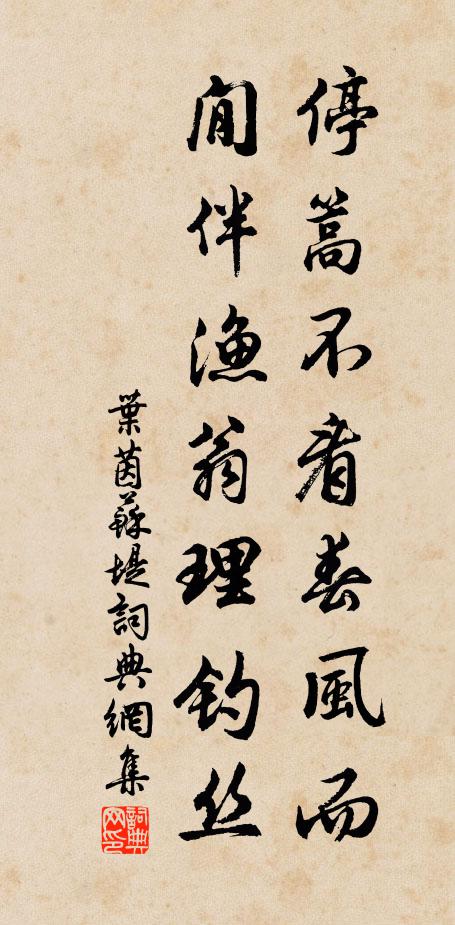 停篙不看春風面
閒伴漁翁理釣絲
葉茵蘇堤詞典網集
詞典网印